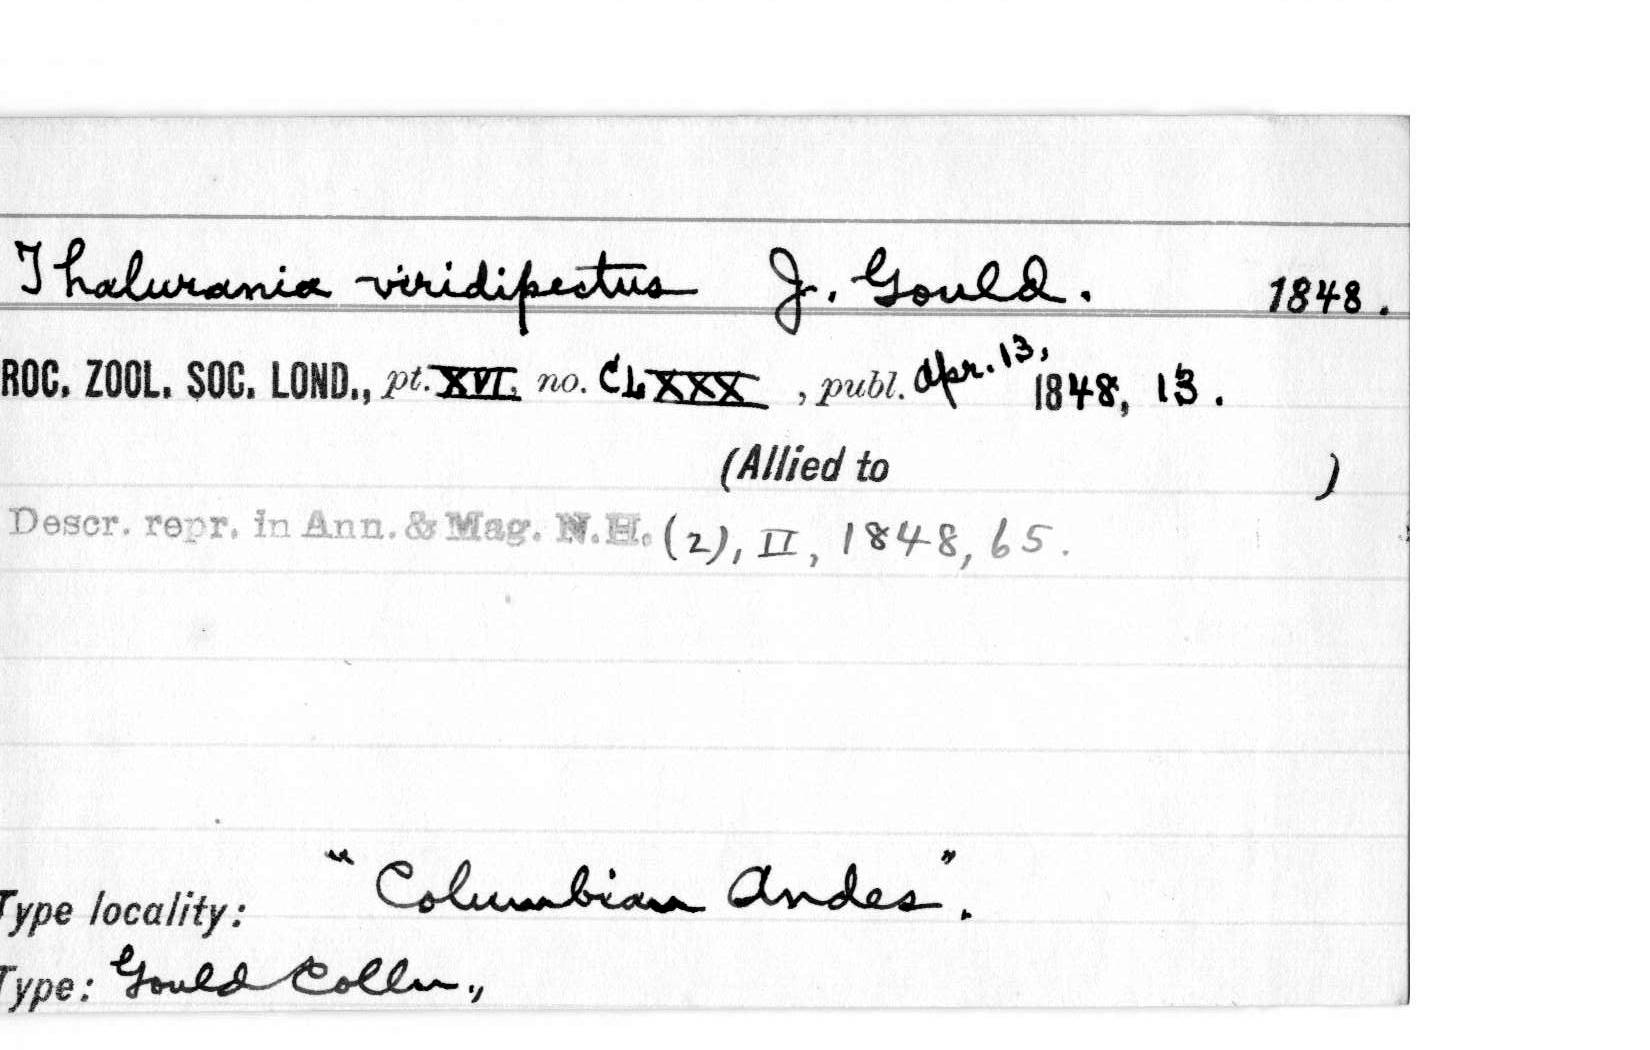 Thalurania viridipectus J. Gould. 1848.
ROC. ZOOL. SOC. LOND., pt. XVI, no. CLXXX, publ. Apr. 13, 1848, 13.
(Allied to )
Descr. repr. in Ann. & Mag. N.H. (2), II, 1848, 65.
Type locality: "Columbian Andes".
Type: Gould Colln.,